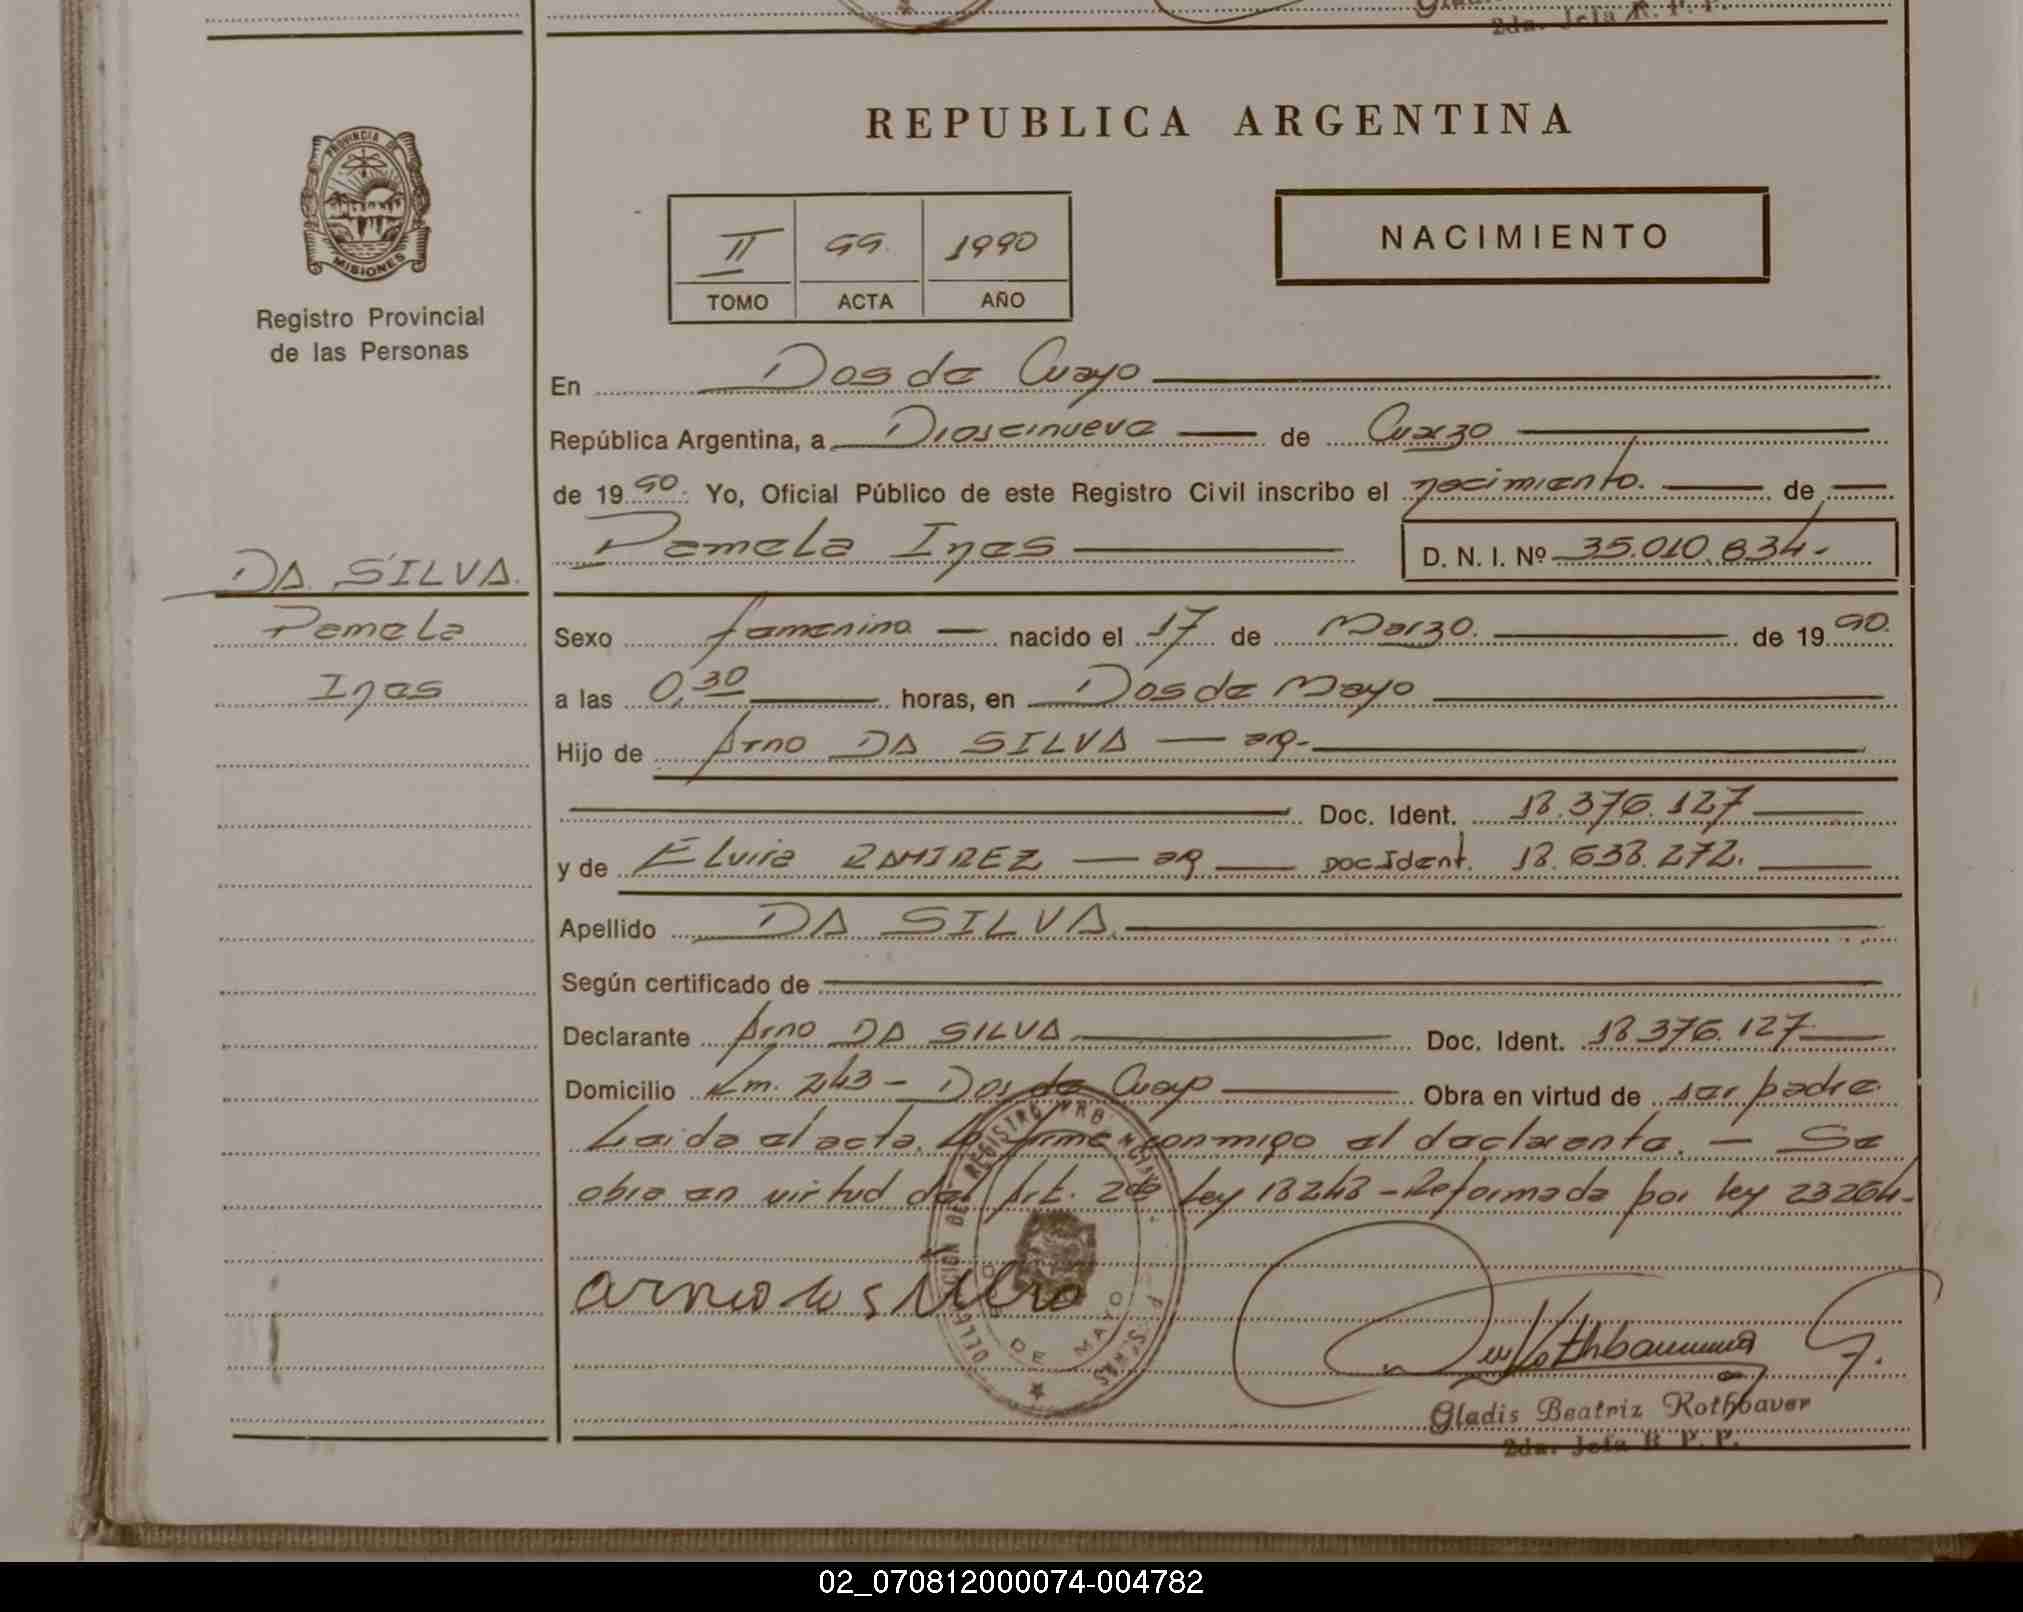 2da. Jefa R. P. P.
REPUBLICA ARGENTINA
PROVINCIA DE
MISIONES
Registro Provincial
de las Personas
II 99. 1990
TOMO ACTA AÑO
NACIMIENTO
En Dos de Mayo
República Argentina, a Diescinueve de Marzo
de 1990. Yo, Oficial Público de este Registro Civil inscribo el nacimiento. de
Pamela Ines D. N. I. Nº 35.010.834.-
DA SILVA.
Pamela
Ines
Sexo femenino nacido el 17 de Marzo. de 1990.
a las 0,30 horas, en Dos de Mayo
Hijo de Arno DA SILVA — arg.
Doc. Ident. 18.376.127
y de Elvira RAMIREZ — arg — Doc Ident. 18.638.272.
Apellido DA SILVA.
Según certificado de
Declarante Arno DA SILVA Doc. Ident. 18.376.127
Domicilio Km. 243 - Dos de Mayo Obra en virtud de ser padre.
Leida el acta, la firma conmigo el declarante. — Se
obra en virtud del Art. 2do Ley 18248 - Reformada por ley 23264-
DELEGACION DEL REGISTRO PROVINCIAL
DE MAYO
Gladis Beatriz Rothbaver
2da. Jefa R. P. P.
02_070812000074-004782